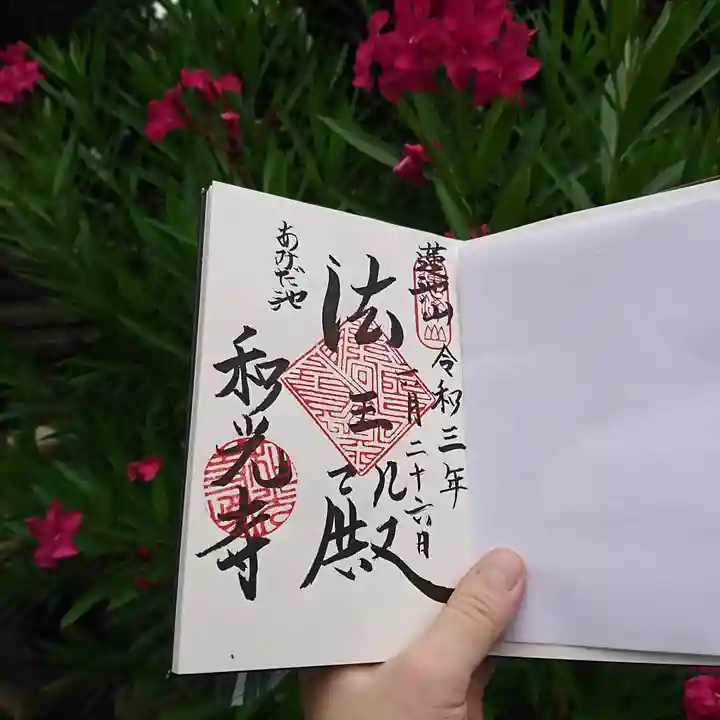 蓮池山
令和三年
二月二十六日
法王殿
あみだ池
和光寺